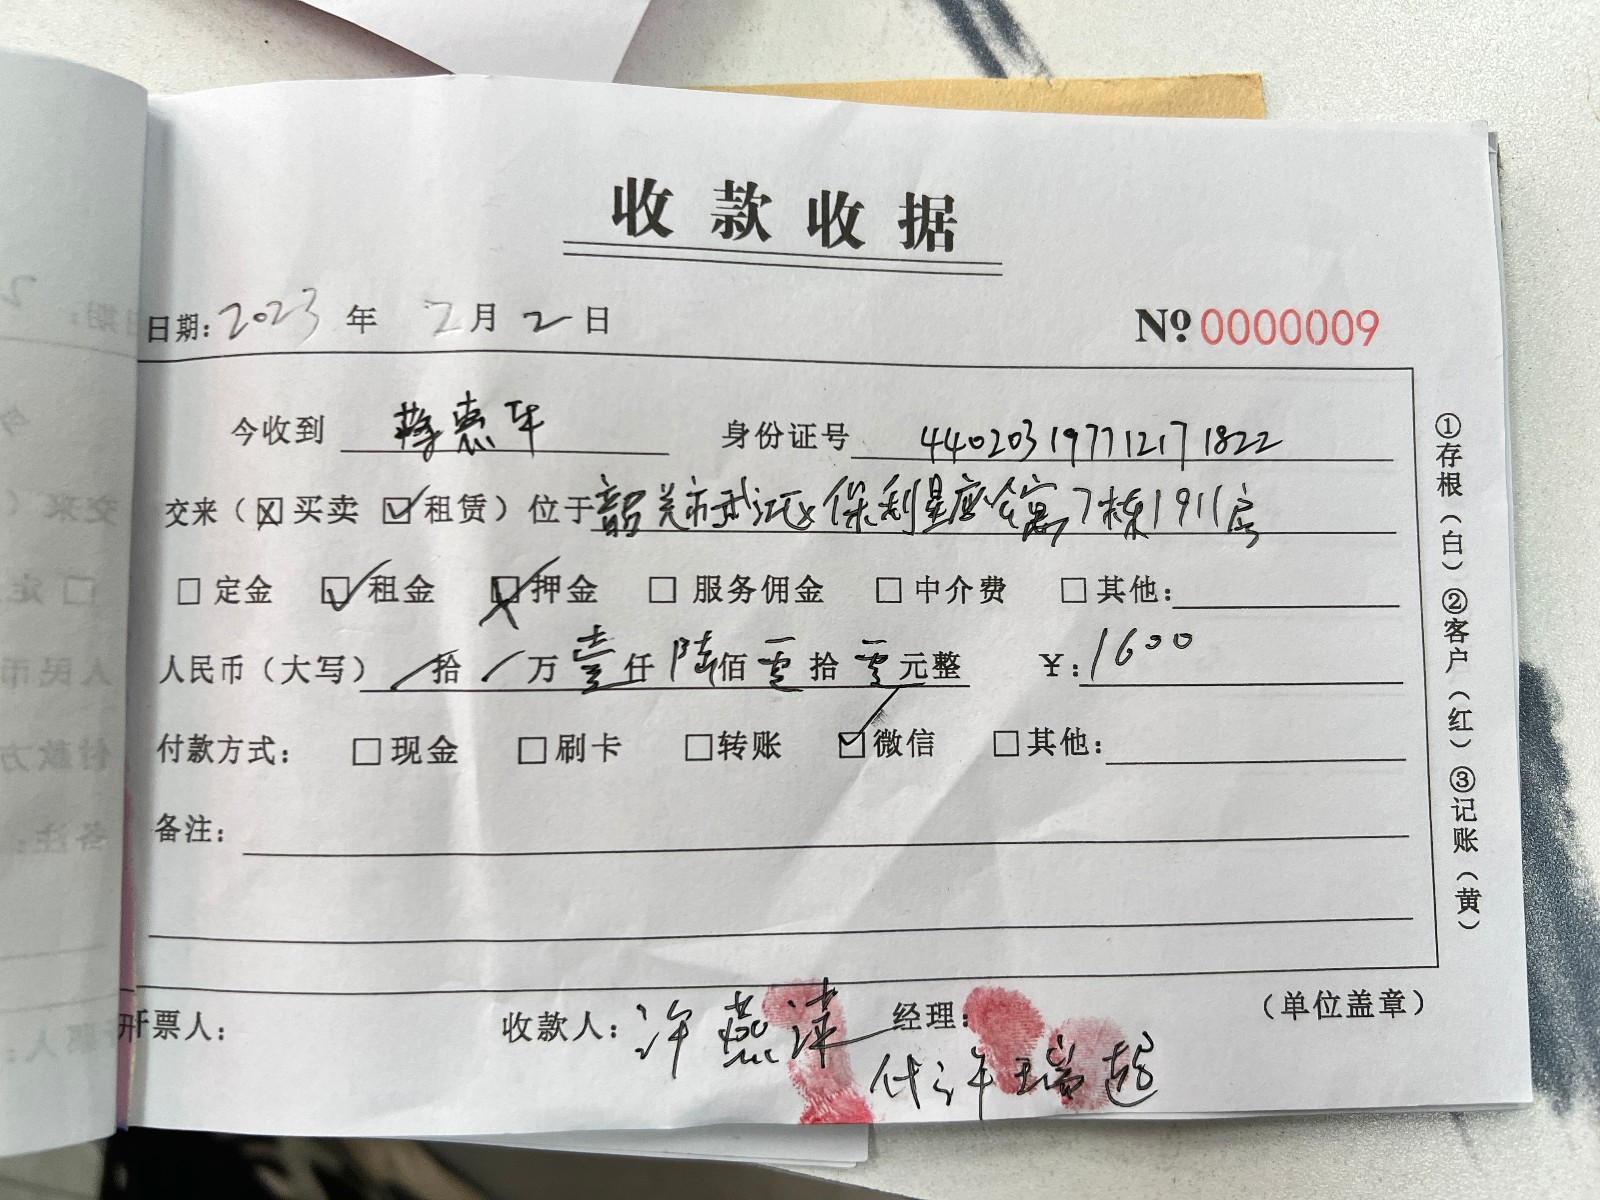 收款收据
日期：2023年2月2日
№ 0000009
今收到 蒋惠 身份证号 440203197712171822
交来（☒买卖 ☑租赁）位于韶关市武江区保利星座公寓7栋1911房
□定金 ☑租金 ☒押金 □服务佣金 □中介费 □其他：
人民币（大写）/拾/万壹仟陆佰零拾零元整 ¥：1600
付款方式： □现金 □刷卡 □转账 ☑微信 □其他：
备注：
开票人： 收款人：许燕萍 经理： （单位盖章）
代许瑞超
①存根（白）②客户（红）③记账（黄）